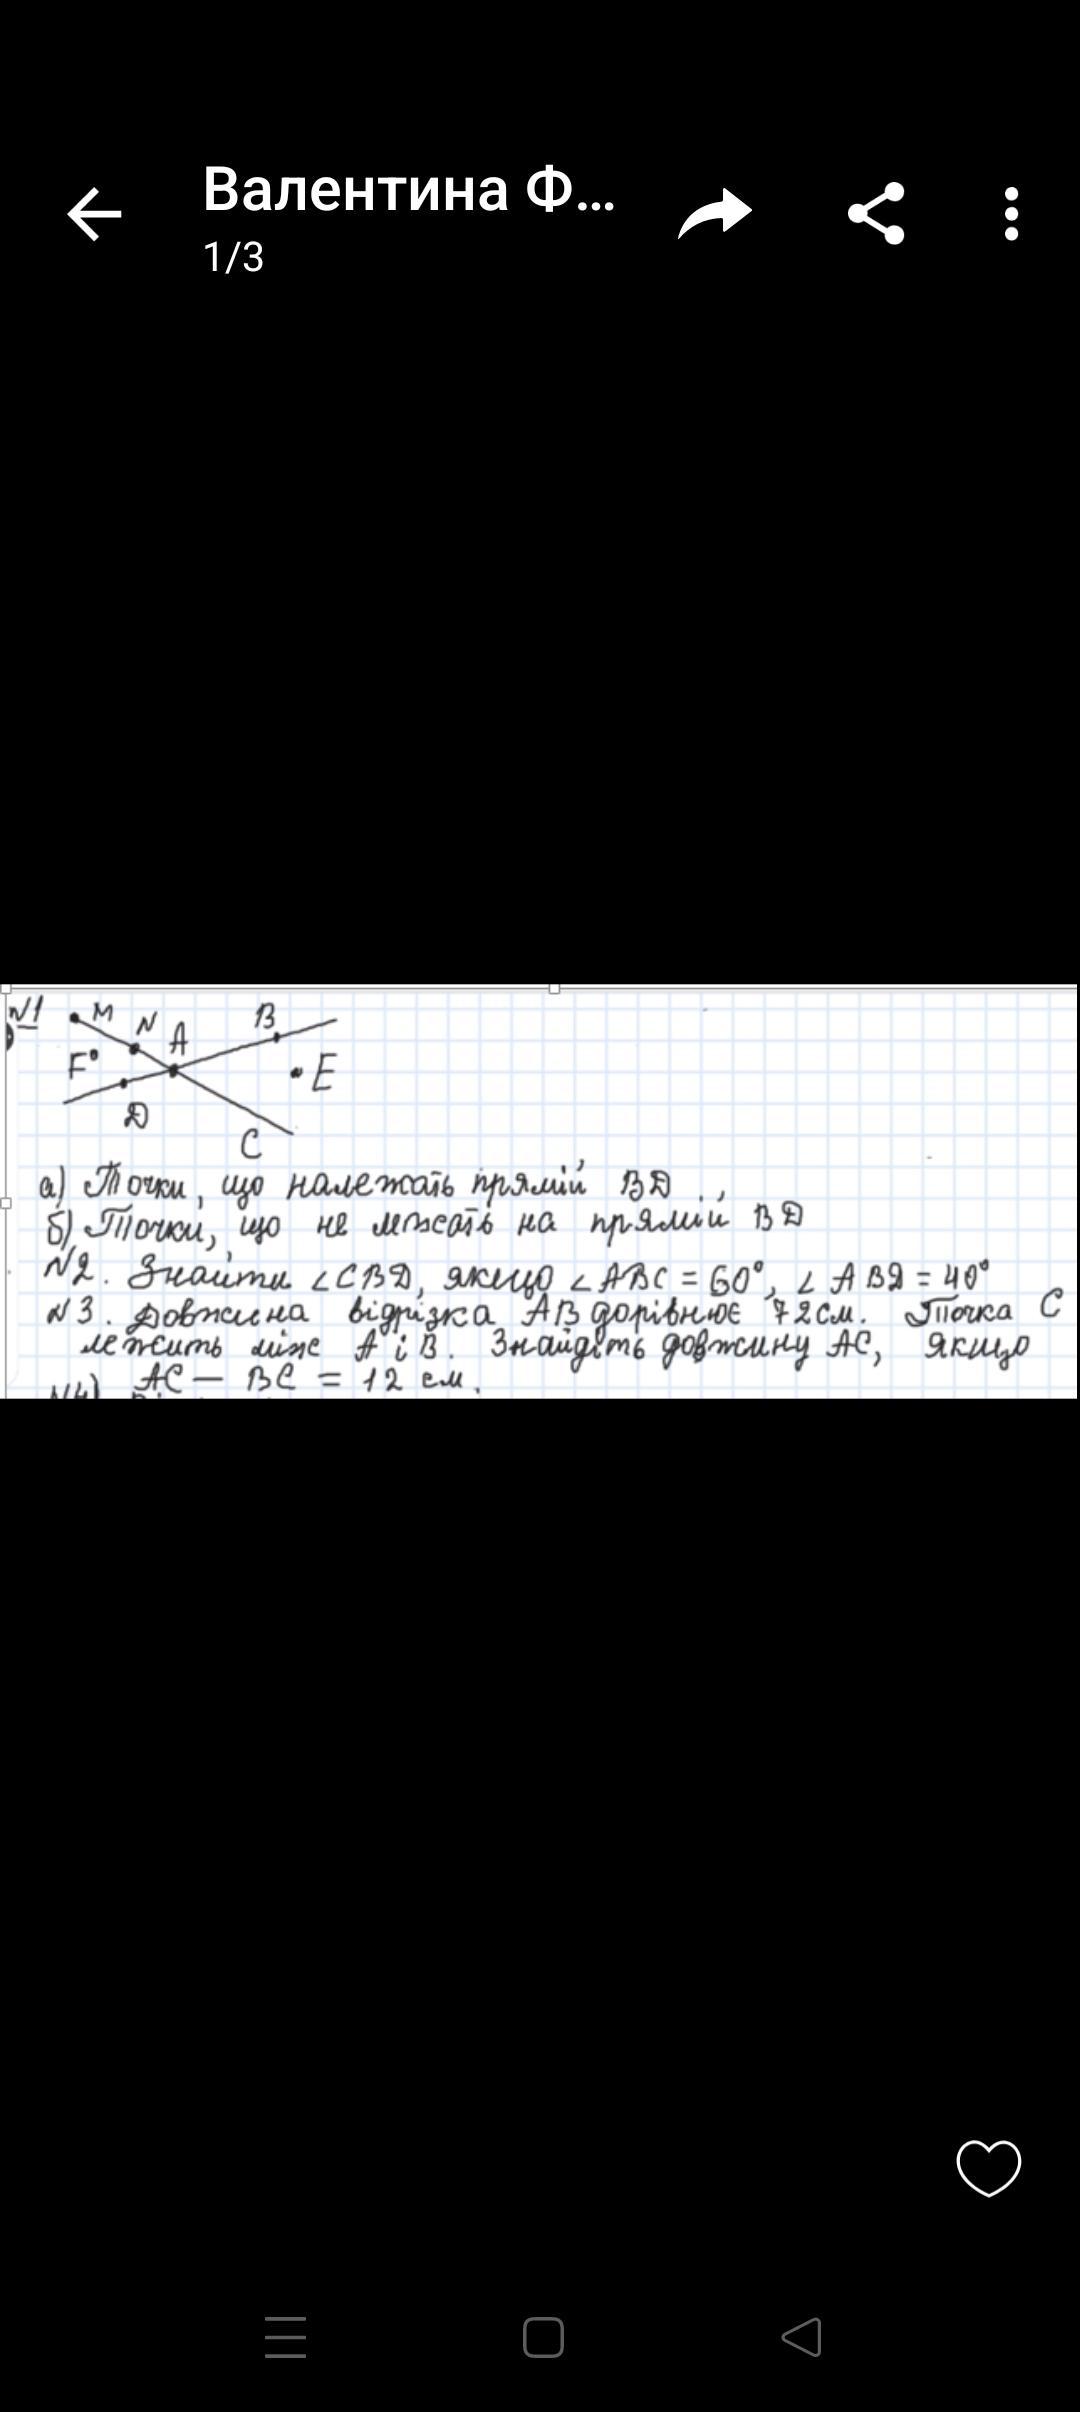 Валентина Ф...
1/3
№1
M
N
A
B
F
E
D
C
а) Точки, що належать прямій BD
б) Точки, що не лежать на прямій BD
№2. Знайти ∠CBD, якщо ∠ABC = 60°, ∠ABD = 40°
№3. Довжина відрізка AB дорівнює 72 см. Точка C
лежить між A і B. Знайдіть довжину AC, якщо
AC – BC = 12 см.
№4)